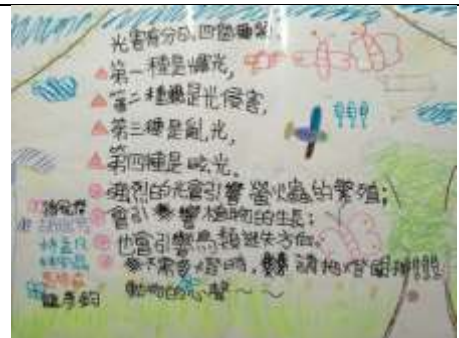 光害有分成四個種類:
第一種是爍光,
第二種是光侵害,
第三種是亂光,
第四種是眩光。
強烈的光會引響螢火蟲的繁殖;
會引響植物的生長;
也會引響鳥類迷失方向。
不需多燈時,請把燈關掉
動物的心聲~~